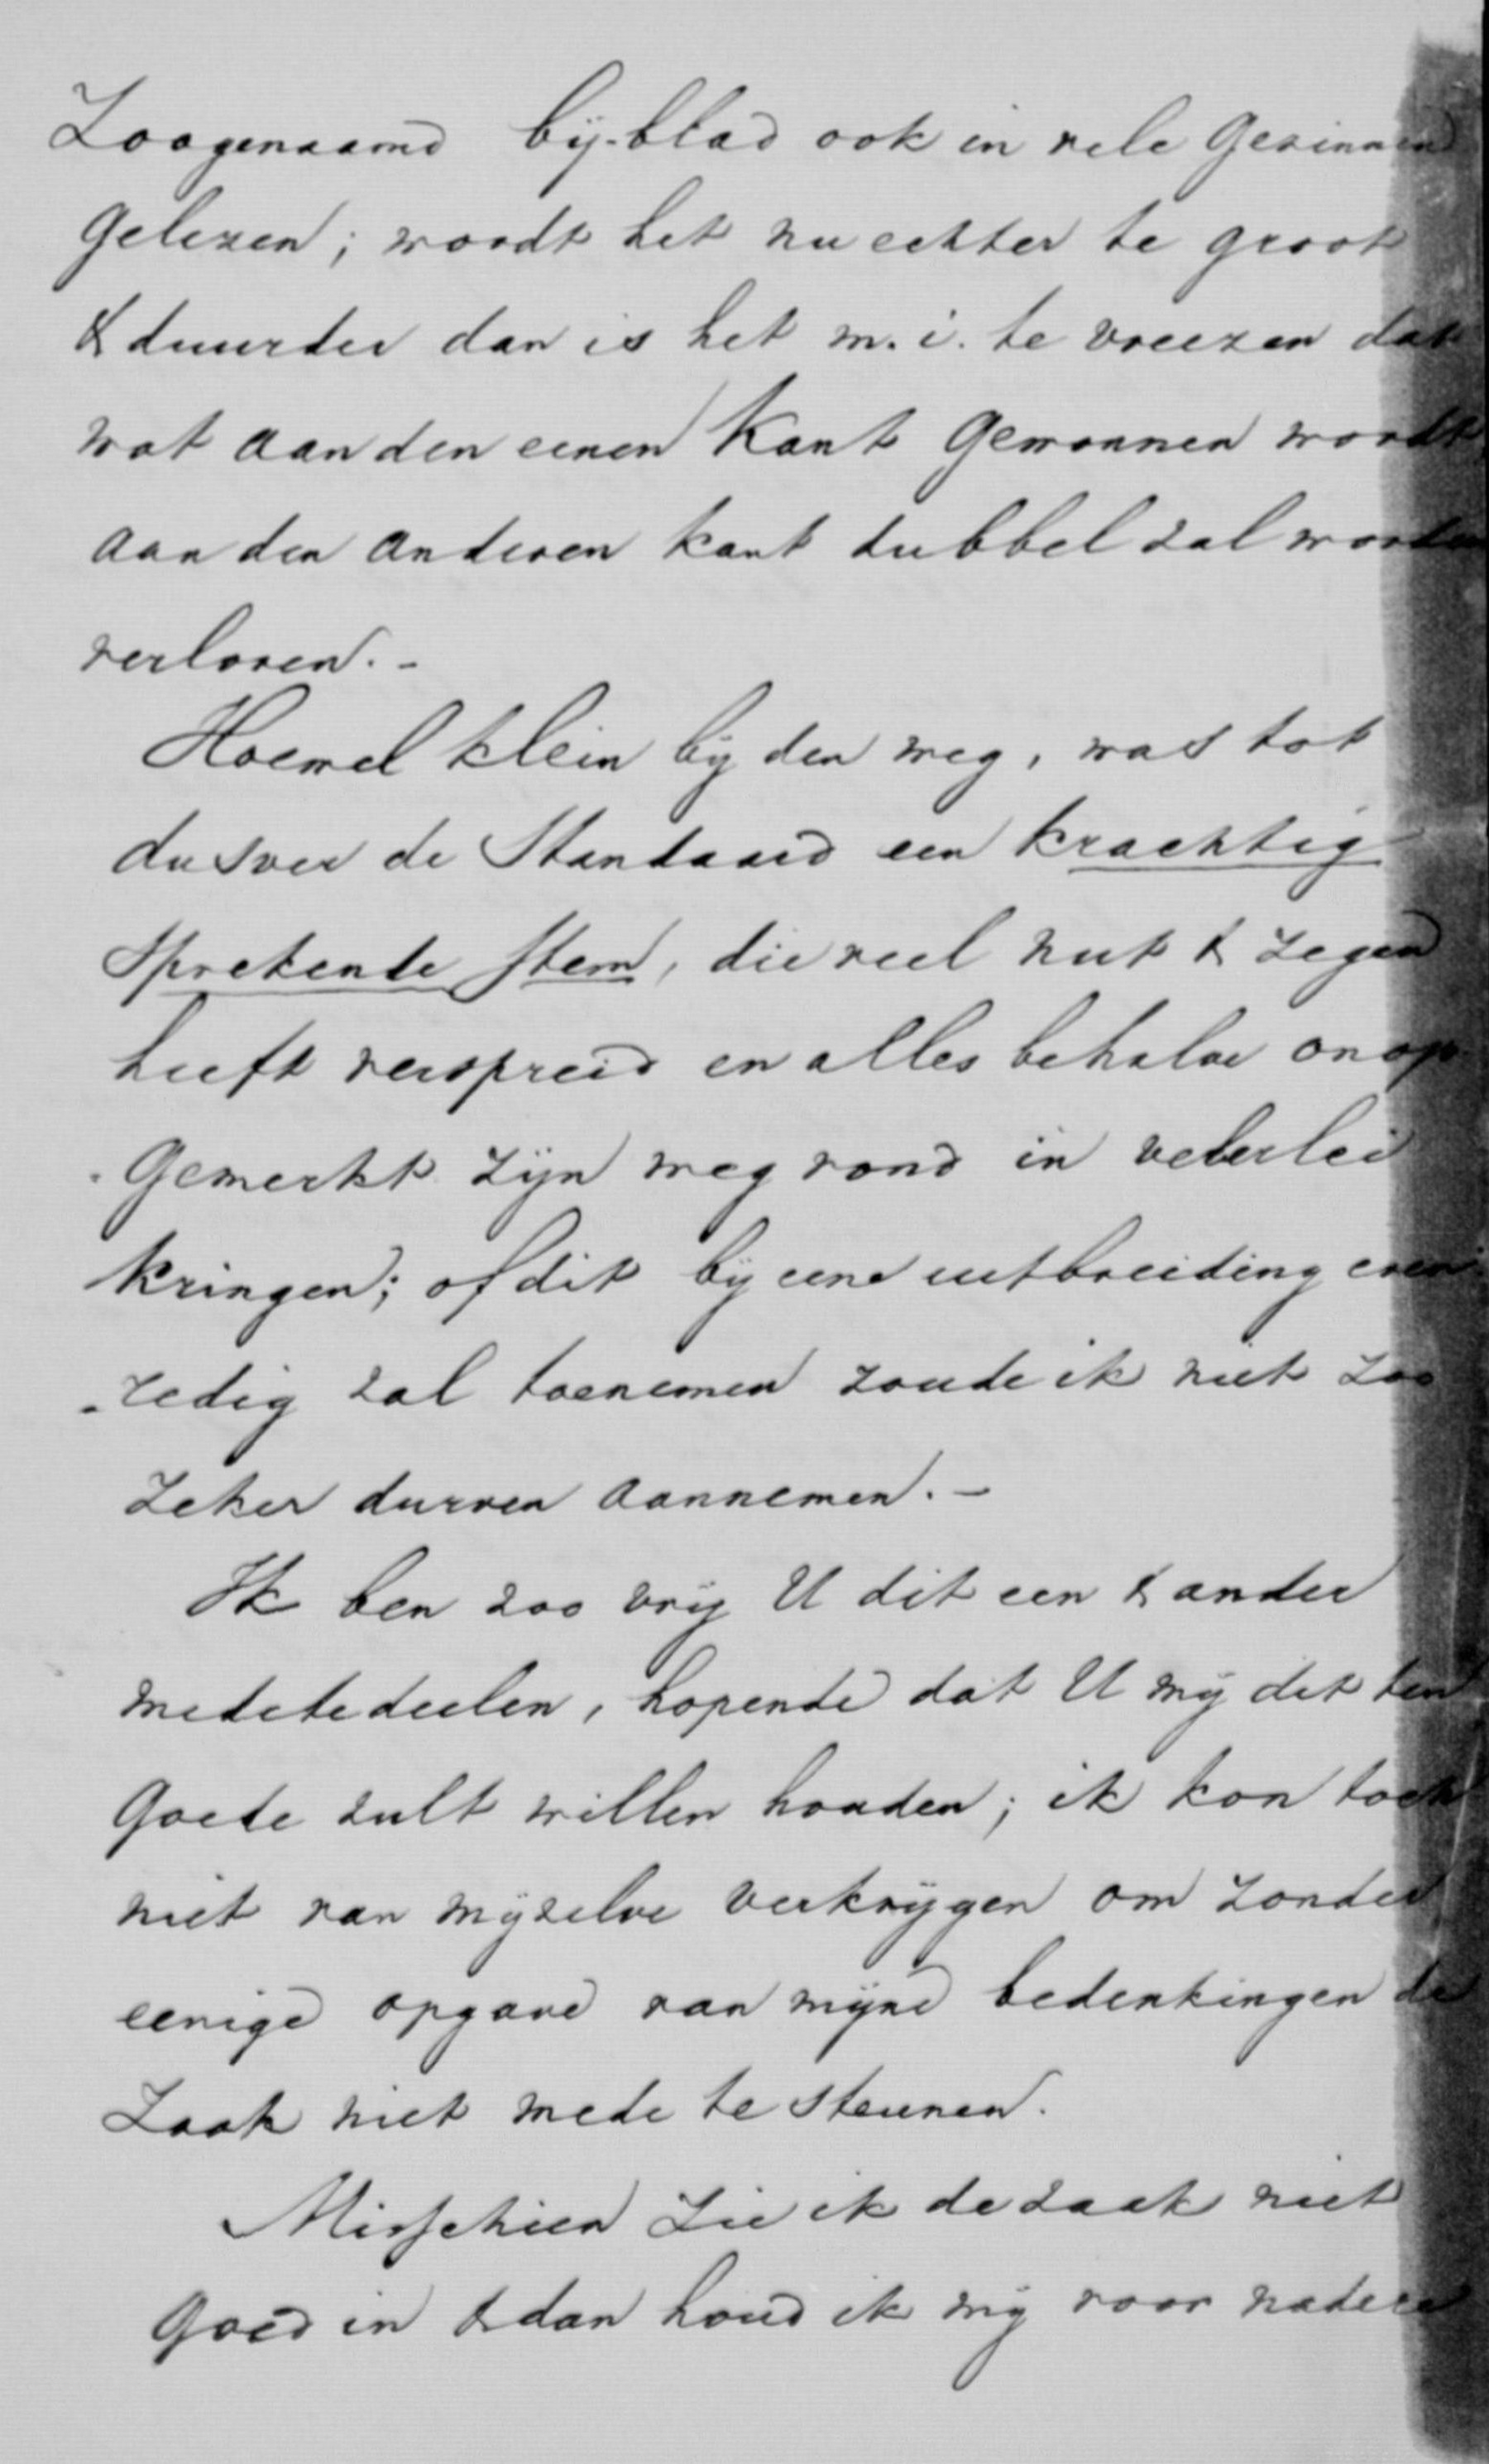 Zoogenaamd bij-blad ook in vele gezinnen
gelezen; wordt het nu echter te groot
& duurder dan is het m. i. te vreezen dat
wat aan den eenen kant gewonnen wordt
aan den anderen kant dubbel zal worden
verloren. -
Hoewel klein bij den weg, was tot
dusver de Standaard een krachtig
sprekende stem, die veel nut & zegen
heeft verspreid en alles behalve onop
-gemerkt zijn weg vond in velerlei
kringen; of dit bij eene uitbreiding even
-redig zal toenemen zoude ik niet zoo
zeker durven aannemen. -
Ik ben zoo vrij U dit een & ander
medetedeelen, hopende dat U mij dit ten
goede zult willen houden; ik kon toch
niet van mijzelve verkrijgen om zonder
eenige opgave van mijne bedenkingen de
Zaak niet mede te steunen.
Misschien zie ik de zaak niet
goed in & dan houd ik mij voor nadere